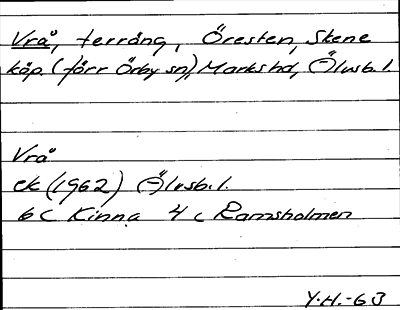 Vrå, terräng, Öresten, Skene
köp. (förr Örby sn), Marks hd, Älvsb. l.
Vrå
ek (1962) Älvsb. l.
6 C Kinna 4 c Ramsholmen
Y.H.-63